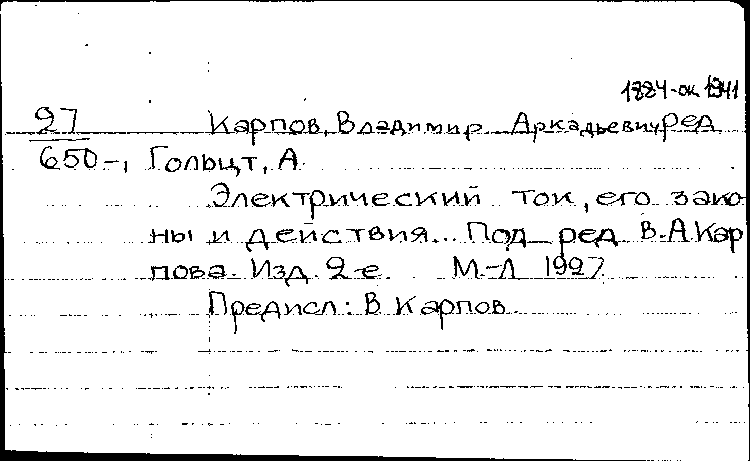 1884-ок. 1941
27 Карпов, Владимир Аркадьевич, ред
650-1 Гольцт, А.
Электрический ток, его зако-
ны и действия... Под ред В.А.Кар
пова. Изд. 2-е. М.-Л 1927.
Предисл: В Карпов